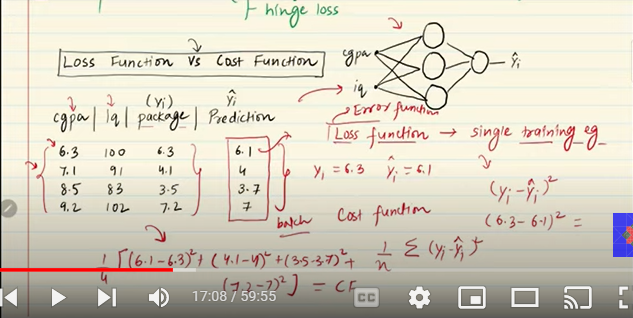 hinge loss
Loss Function Vs Cost Function
cgpa
iq
ŷi
(yi) ŷi
cgpa | iq | package | Prediction
6.3 100 6.3 6.1
7.1 91 4.1 4
8.5 83 3.5 3.7
9.2 102 7.2 7
Error function
Loss function → single training eg
yi = 6.3 ŷi = 6.1
(yi - ŷi)²
(6.3 - 6.1)² =
batch Cost function
1/4 [(6.1-6.3)² + (4.1-4)² + (3.5-3.7)² +
(7.2-7)²] = CF
1/n Σ (yi - ŷi)²
17:08 / 59:55
CC